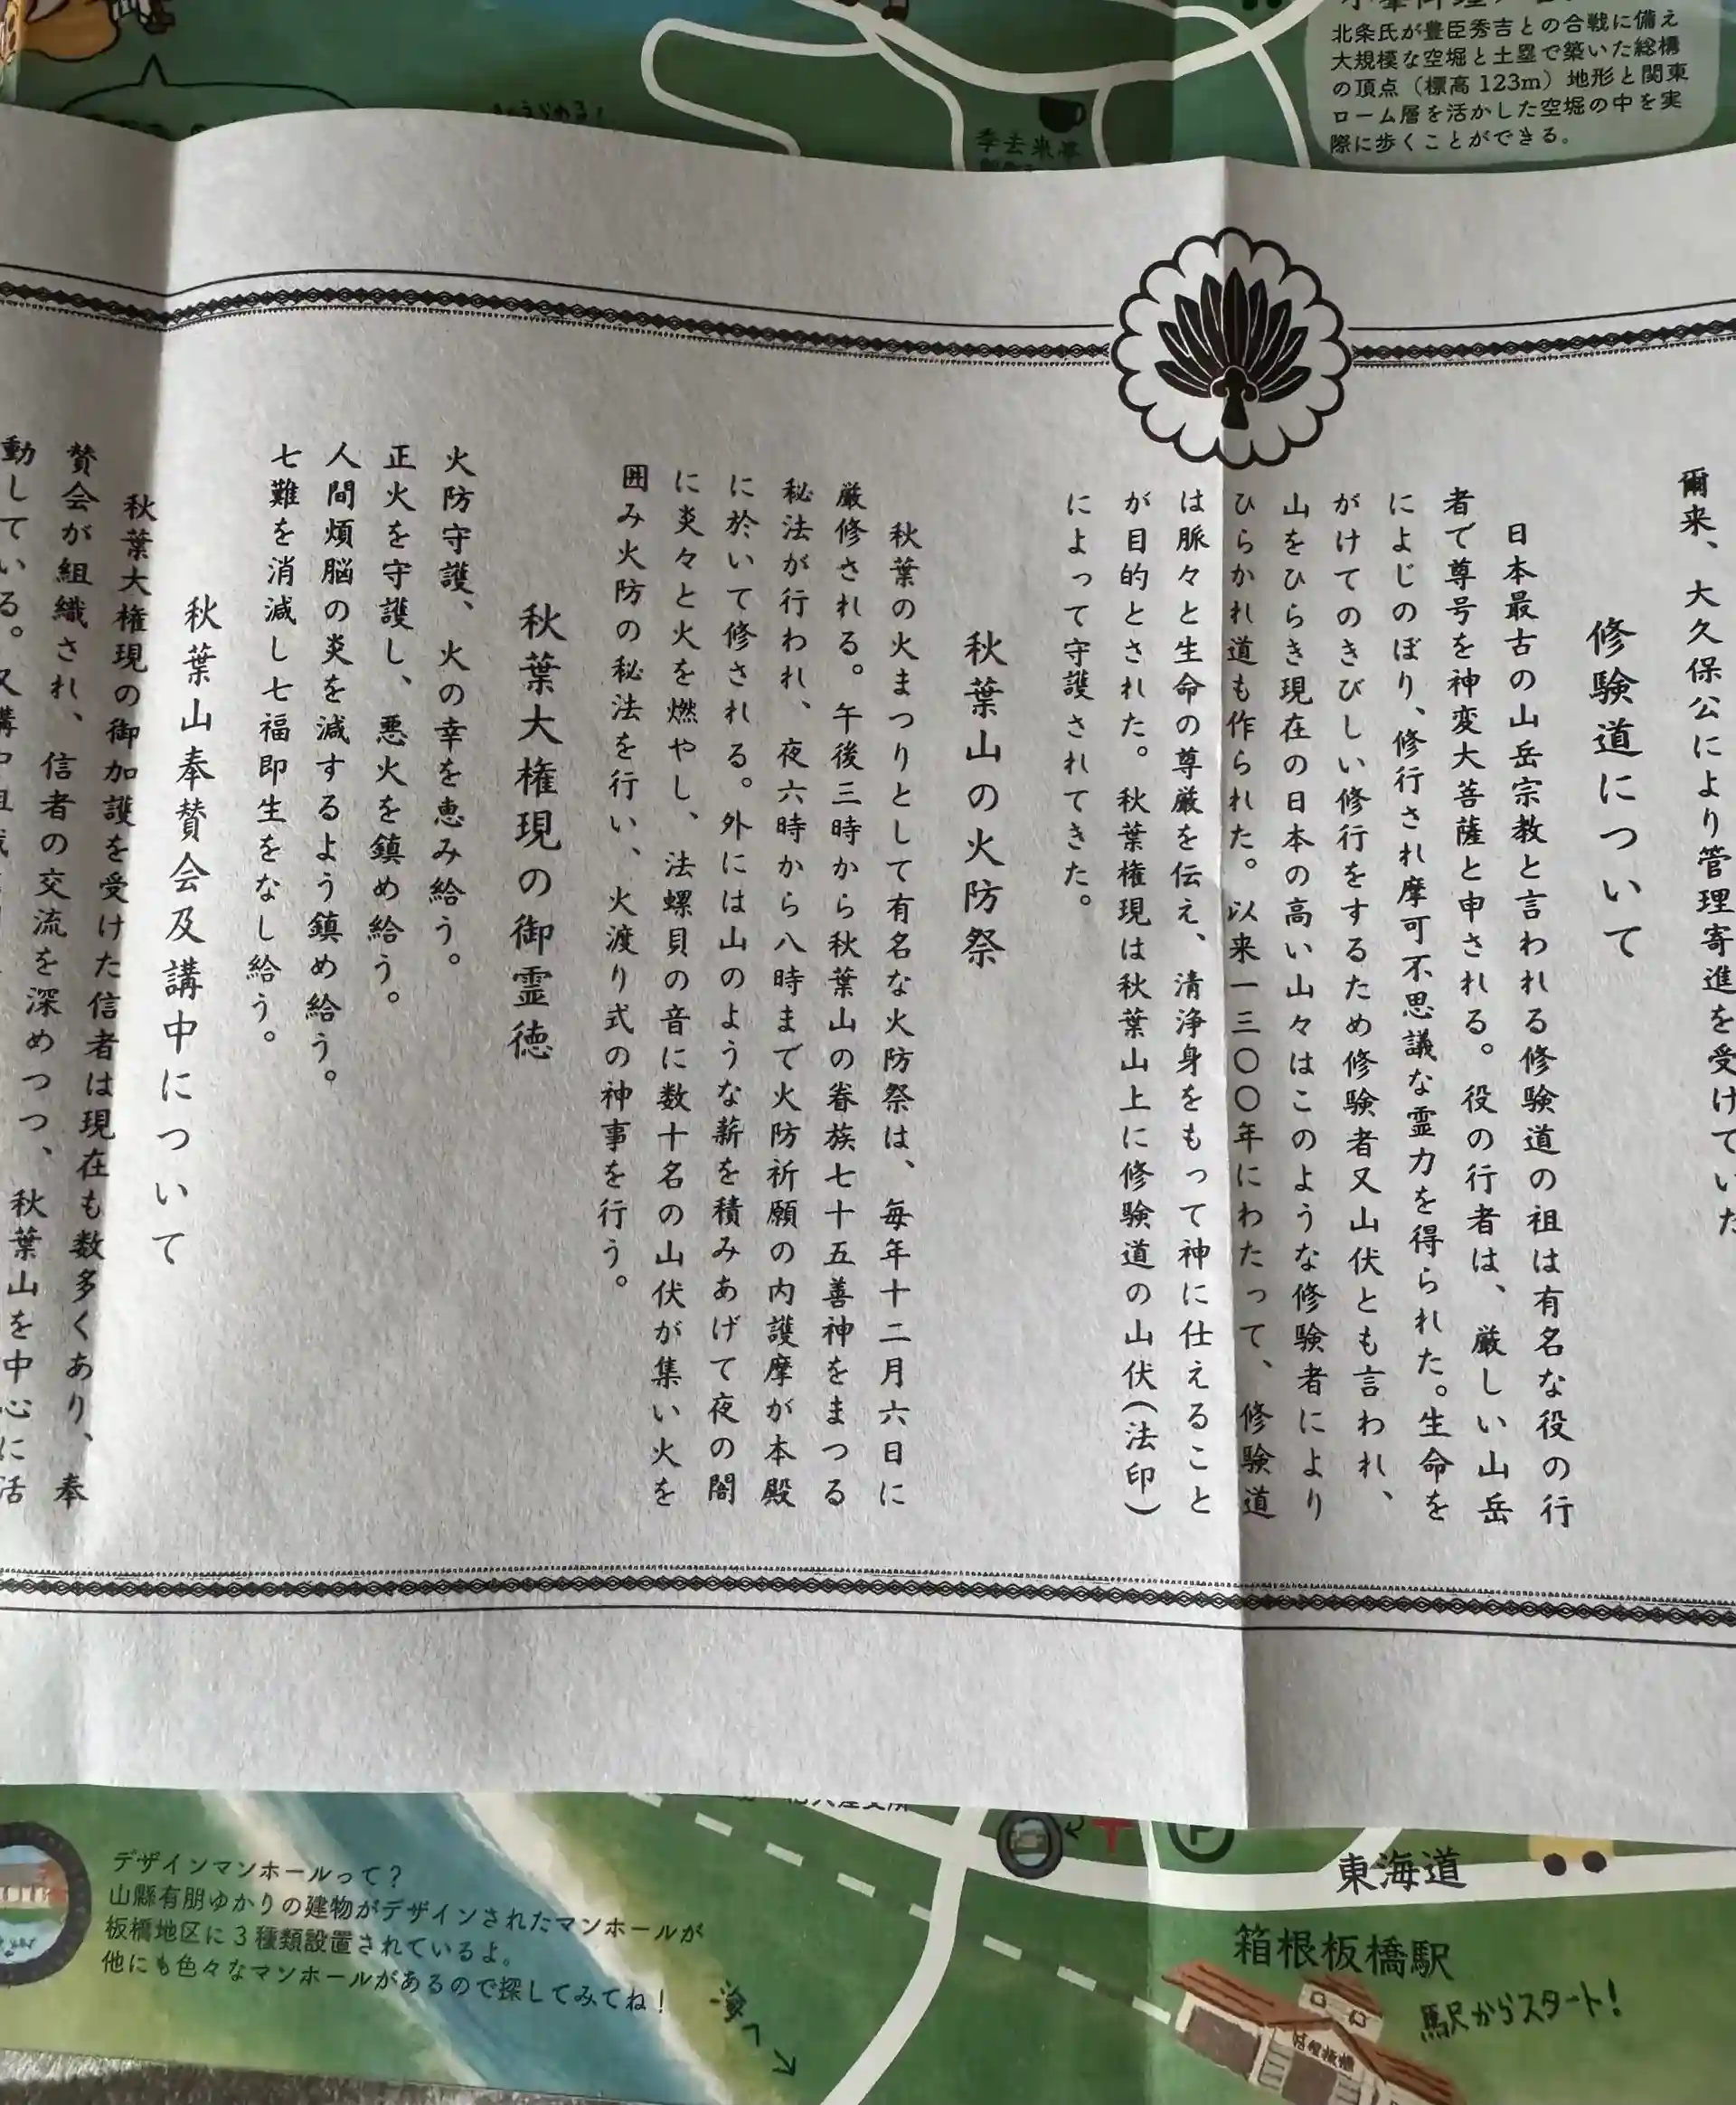 北条氏が豊臣秀吉との合戦に備え
大規模な空堀と土塁で築いた総構
の頂点（標高123m）地形と関東
ローム層を活かした空堀の中を実
際に歩くことができる。
季去来亭
爾来、大久保公により管理寄進を受けてい
修験道について
日本最古の山岳宗教と言われる修験道の祖は有名な役の行
者で尊号を神変大菩薩と申される。役の行者は、厳しい山岳
によじのぼり、修行され摩可不思議な霊力を得られた。生命を
がけてのきびしい修行をするため修験者又山伏とも言われ、
山をひらき現在の日本の高い山々はこのような修験者により
ひらかれ道も作られた。以来一三〇〇年にわたって、修験道
は脈々と生命の尊厳を伝え、清浄身をもって神に仕えること
が目的とされた。秋葉権現は秋葉山上に修験道の山伏(法印)
によって守護されてきた。
秋葉山の火防祭
秋葉の火まつりとして有名な火防祭は、毎年十二月六日に
厳修される。午後三時から秋葉山の眷族七十五善神をまつる
秘法が行われ、夜六時から八時まで火防祈願の内護摩が本殿
に於いて修される。外には山のような薪を積みあげて夜の闇
に炎々と火を燃やし、法螺貝の音に数十名の山伏が集い火を
囲み火防の秘法を行い、火渡り式の神事を行う。
秋葉大権現の御霊徳
火防守護、火の幸を恵み給う。
正火を守護し、悪火を鎮め給う。
人間煩脳の炎を減するよう鎮め給う。
七難を消減し七福即生をなし給う。
秋葉山奉賛会及講中について
秋葉大権現の御加護を受けた信者は現在も数多くあり、奉
賛会が組織され、信者の交流を深めつつ、秋葉山を中心に活
動している。
デザインマンホールって？
山縣有朋ゆかりの建物がデザインされたマンホールが
板橋地区に3種類設置されているよ。
他にも色々なマンホールがあるので探してみてね！
海へ
東海道
箱根板橋駅
駅からスタート！
箱根板橋